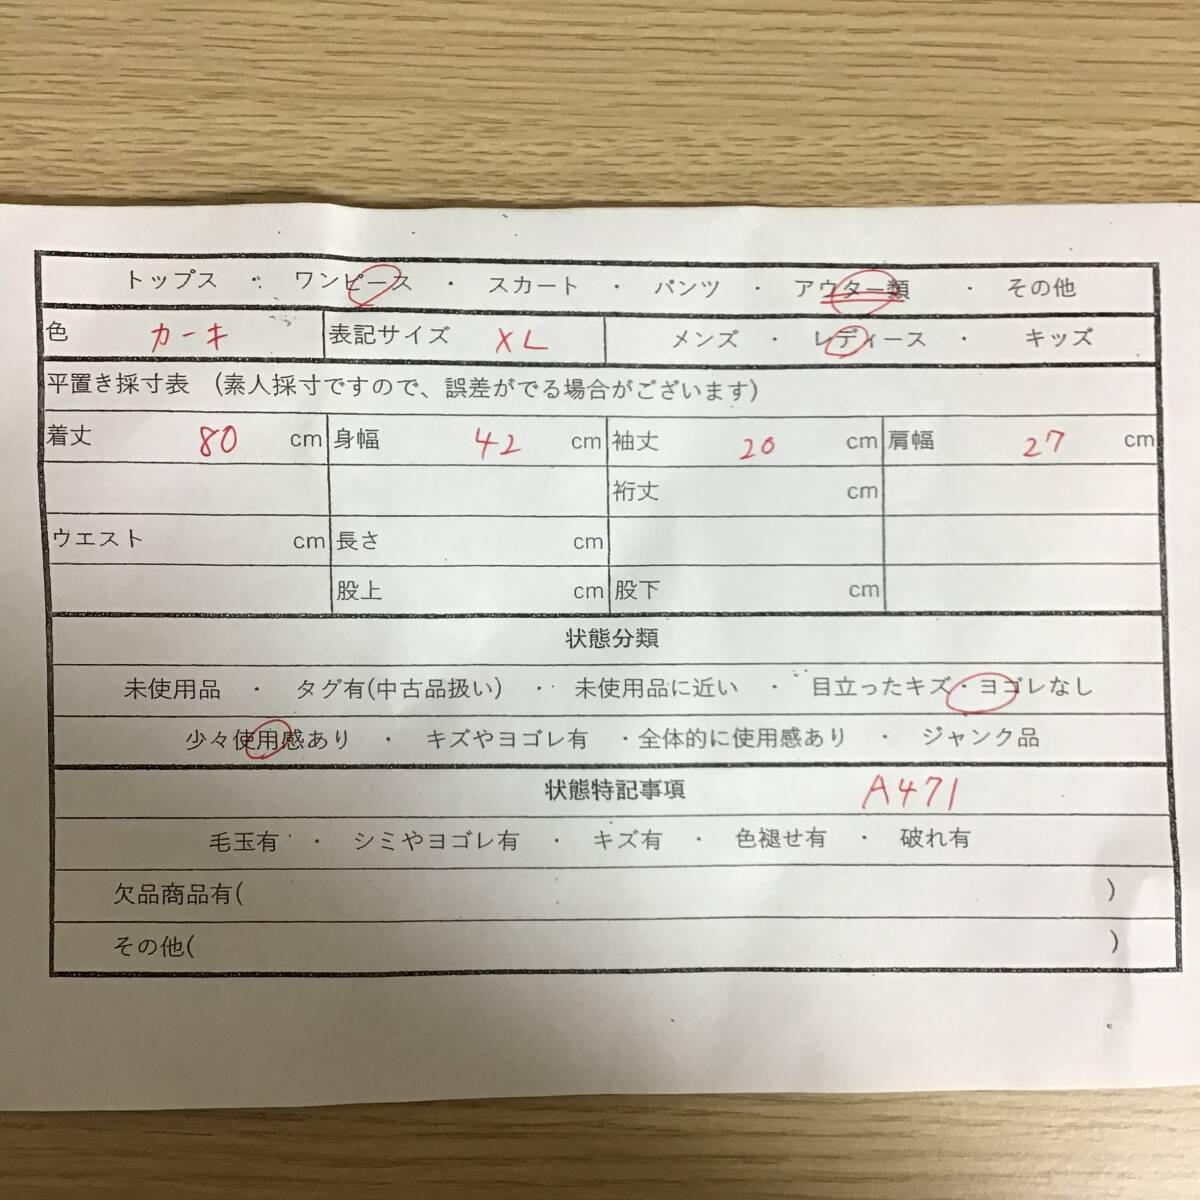 トップス ・ ワンピース ・ スカート ・ パンツ ・ アウター類 ・ その他
色 カーキ 表記サイズ XL メンズ ・ レディース ・ キッズ
平置き採寸表 (素人採寸ですので、誤差がでる場合がございます)
着丈 80 cm 身幅 42 cm 袖丈 20 cm 肩幅 27 cm
裄丈 cm
ウエスト cm 長さ cm
股上 cm 股下 cm
状態分類
未使用品 ・ タグ有(中古品扱い) ・ 未使用品に近い ・ 目立ったキズ・ヨゴレなし
少々使用感あり ・ キズやヨゴレ有 ・全体的に使用感あり ・ ジャンク品
状態特記事項 A471
毛玉有 ・ シミやヨゴレ有 ・ キズ有 ・ 色褪せ有 ・ 破れ有
欠品商品有( )
その他( )